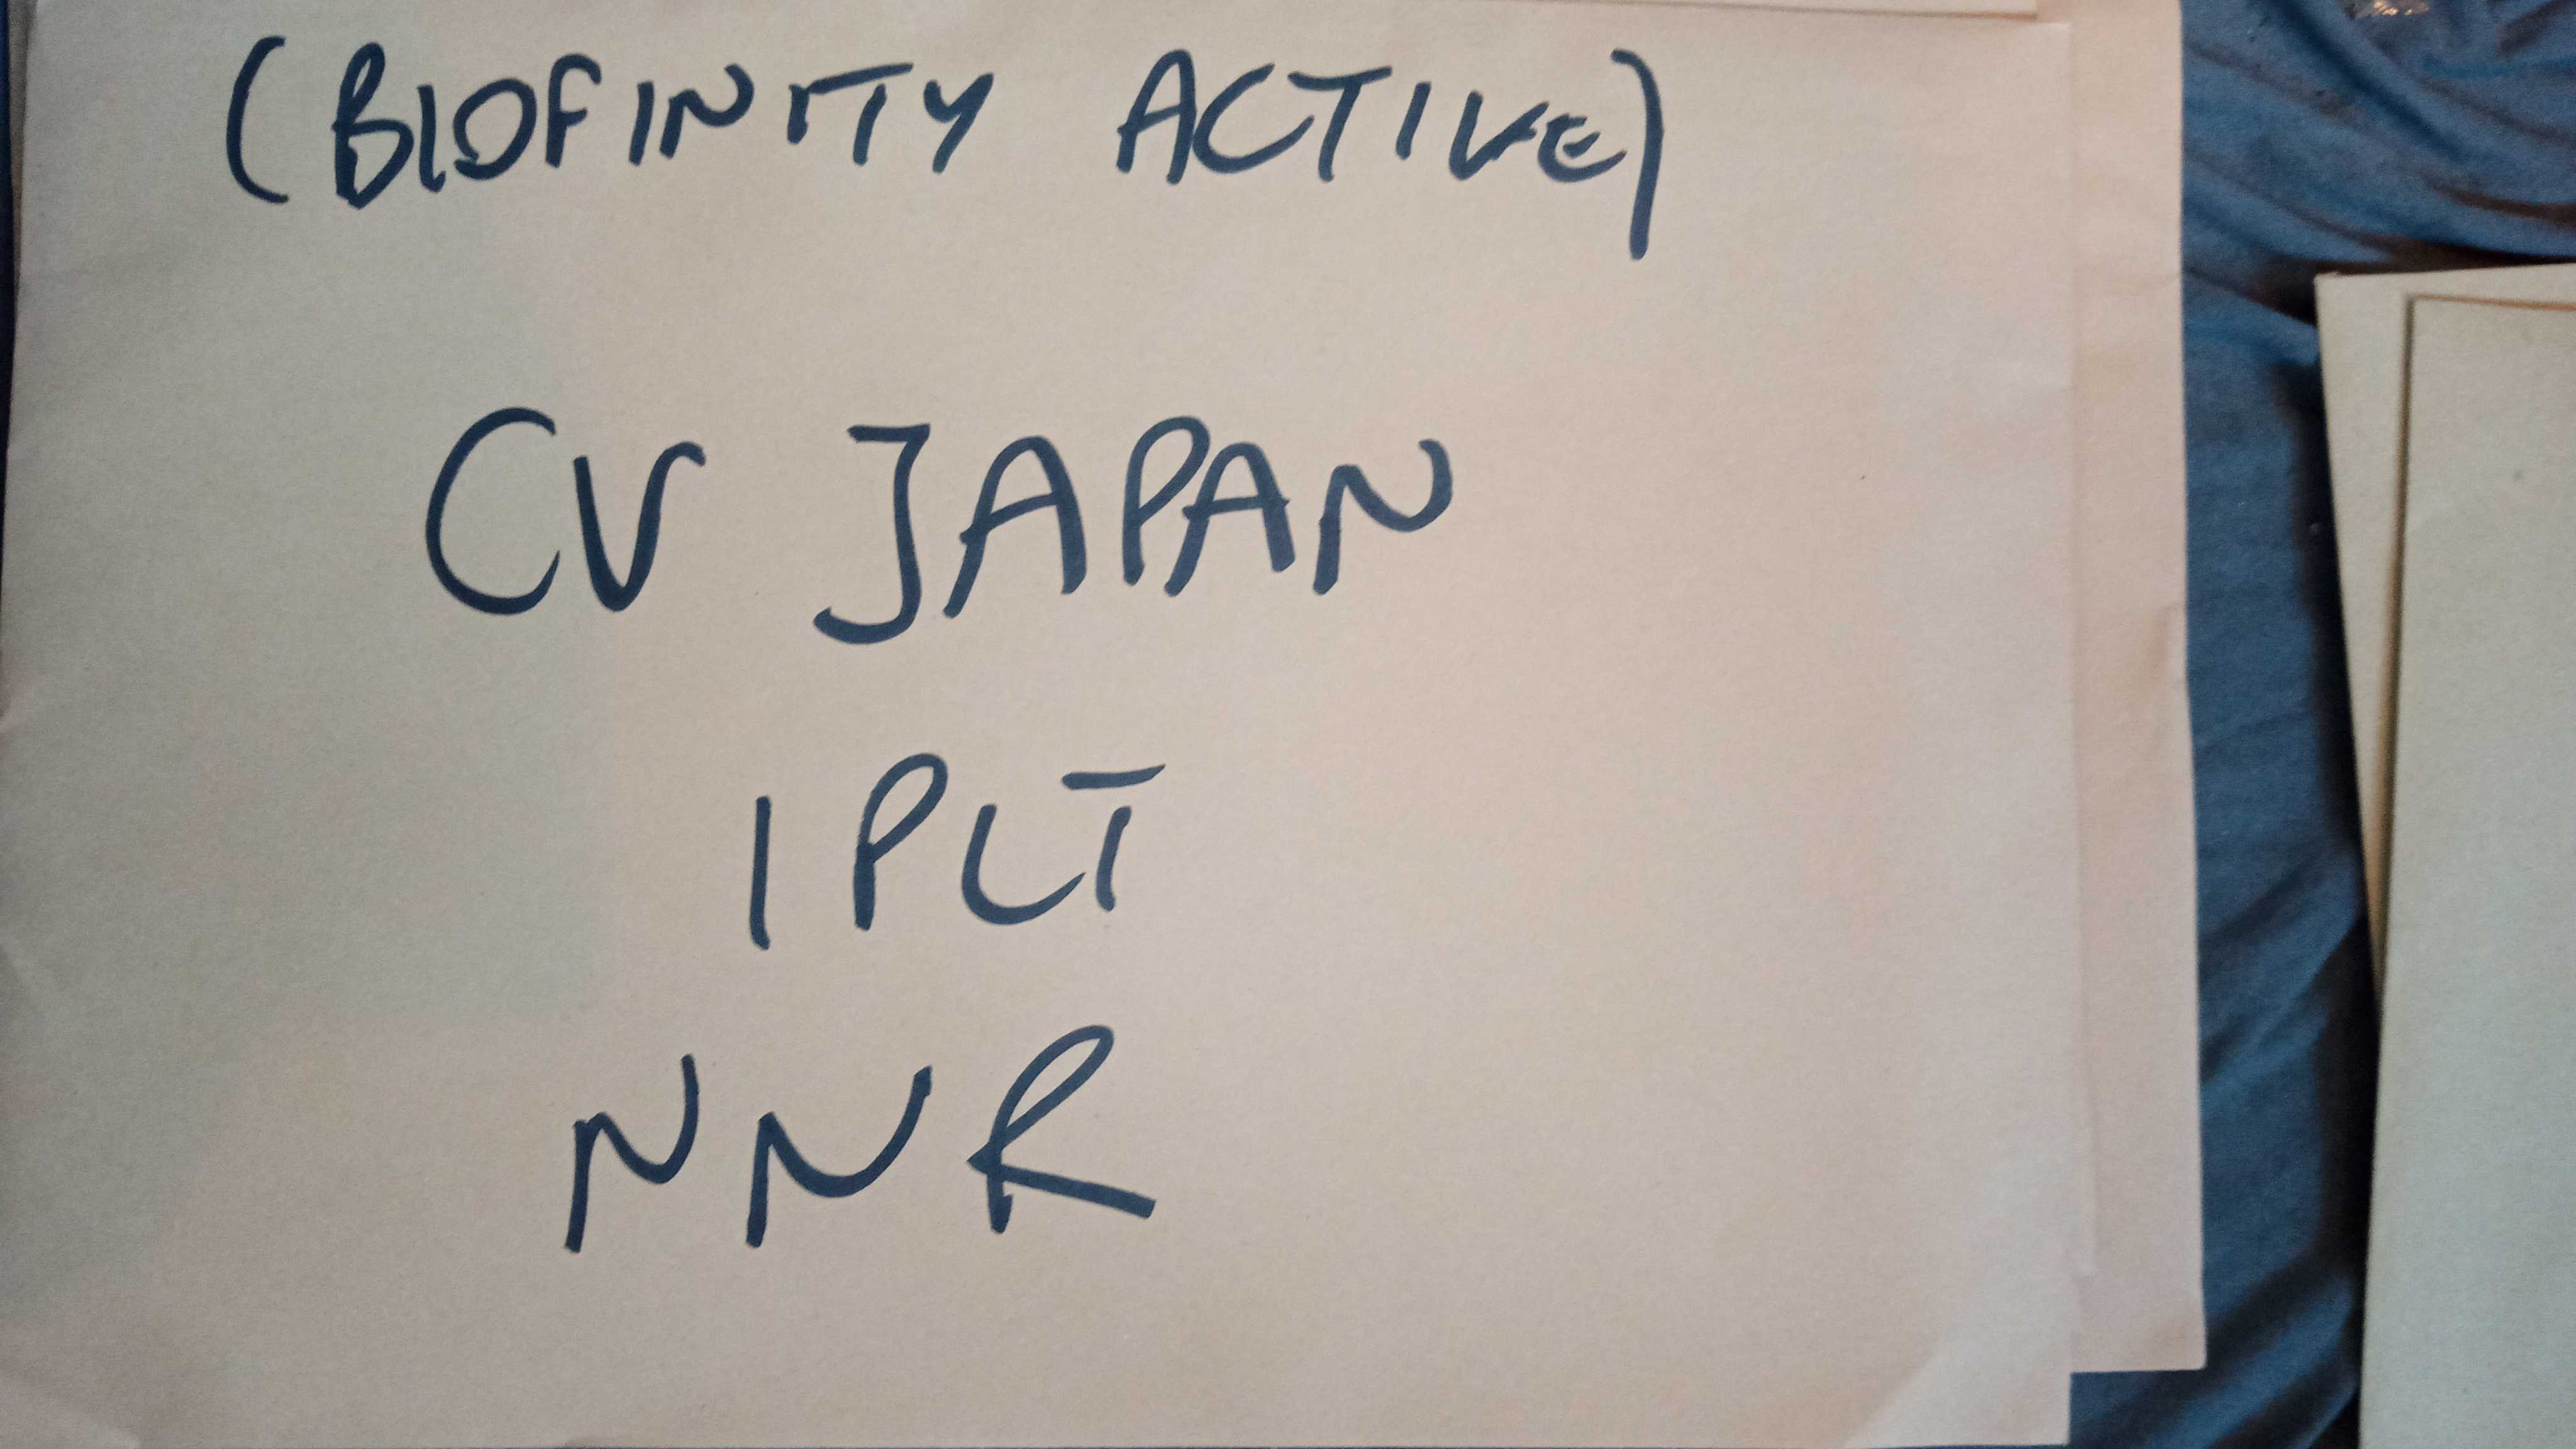 (BIOFINITY ACTIVE)
CV JAPAN
1 PLT
NNR